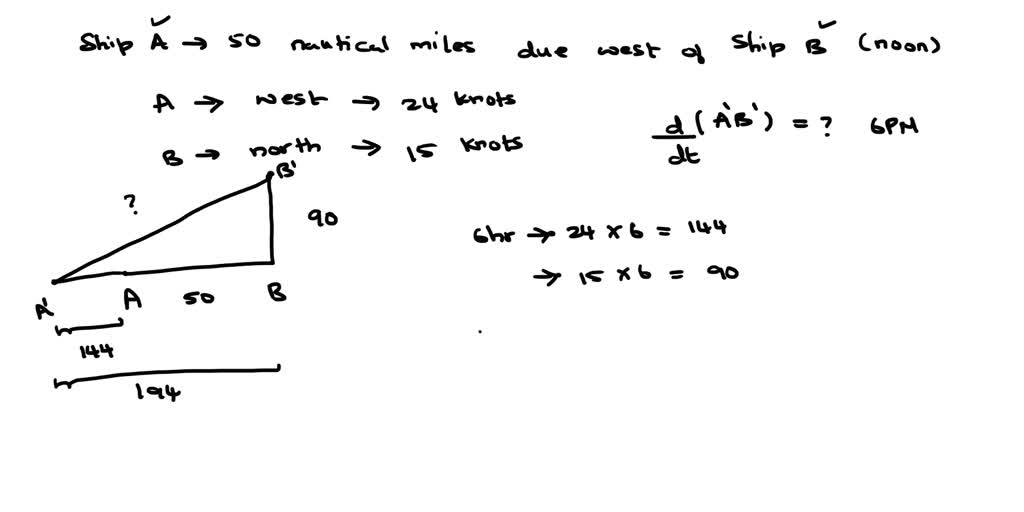 Ship A → 50 nautical miles due west of Ship B (noon)
A → west → 24 knots
B → north → 15 knots
d/dt (A'B') = ? 6PM
B'
?
90
6hr → 24 × 6 = 144
→ 15 × 6 = 90
A' A 50 B
144
194